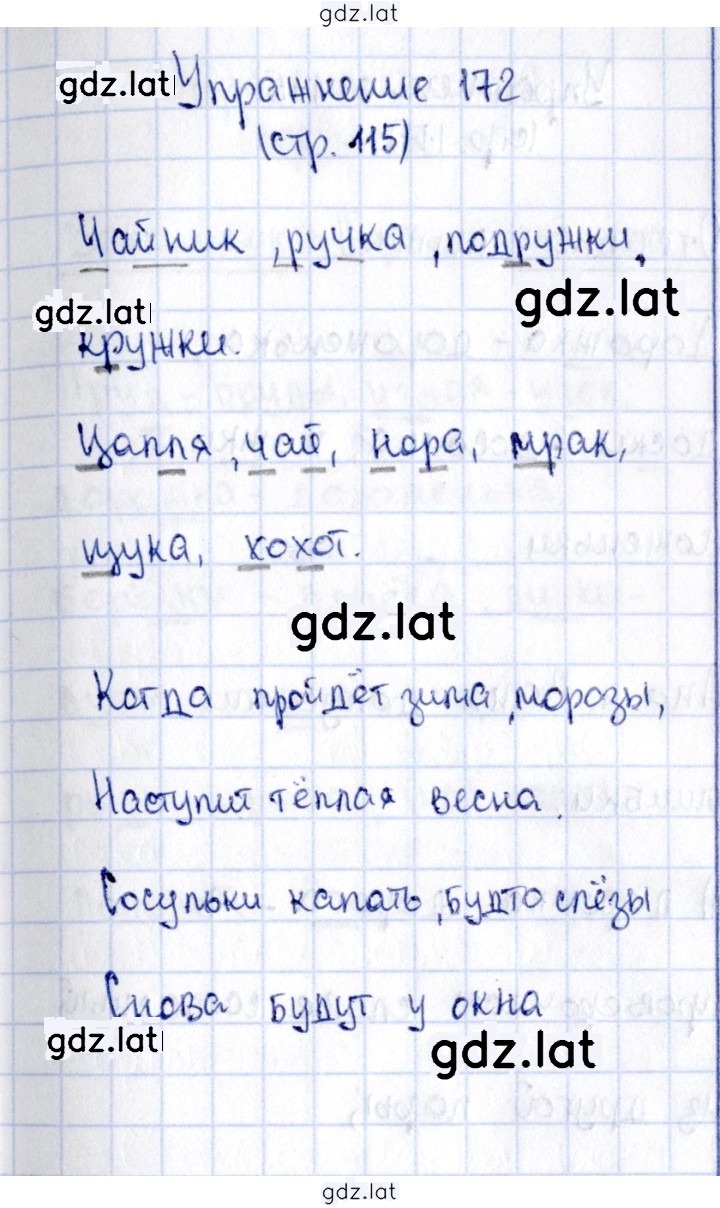 gdz.lat
gdz.lat Упражнение 172
(стр. 115)
Чайник, ручка, подружки,
gdz.lat gdz.lat
кружки.
Цапля, чай, нора, мрак,
щука, хохот.
gdz.lat
Когда пройдёт зима, морозы,
Наступит тёплая весна.
Сосульки капать, будто слёзы
Снова будут у окна
gdz.lat gdz.lat
gdz.lat